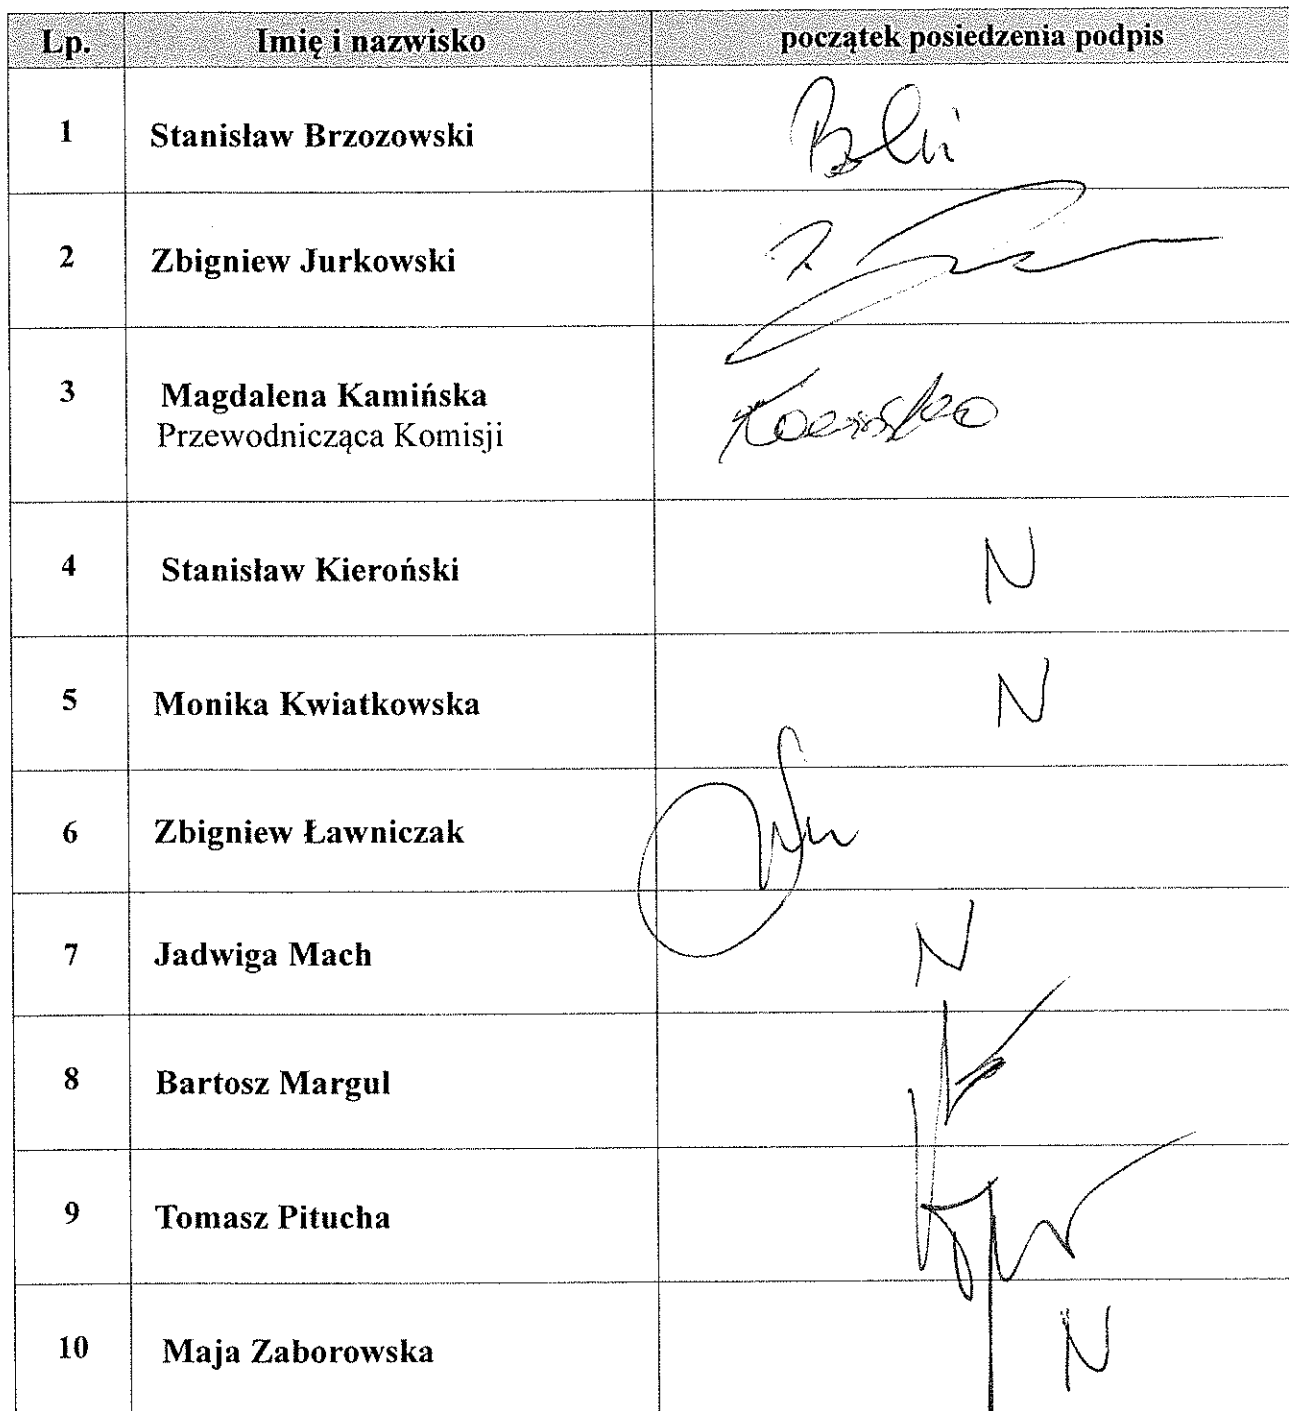 Lp. Imię i nazwisko początek posiedzenia podpis
1 Stanisław Brzozowski
2 Zbigniew Jurkowski
3 Magdalena Kamińska
Przewodnicząca Komisji
4 Stanisław Kieroński N
5 Monika Kwiatkowska N
6 Zbigniew Ławniczak
7 Jadwiga Mach N
8 Bartosz Margul
9 Tomasz Pitucha
10 Maja Zaborowska N